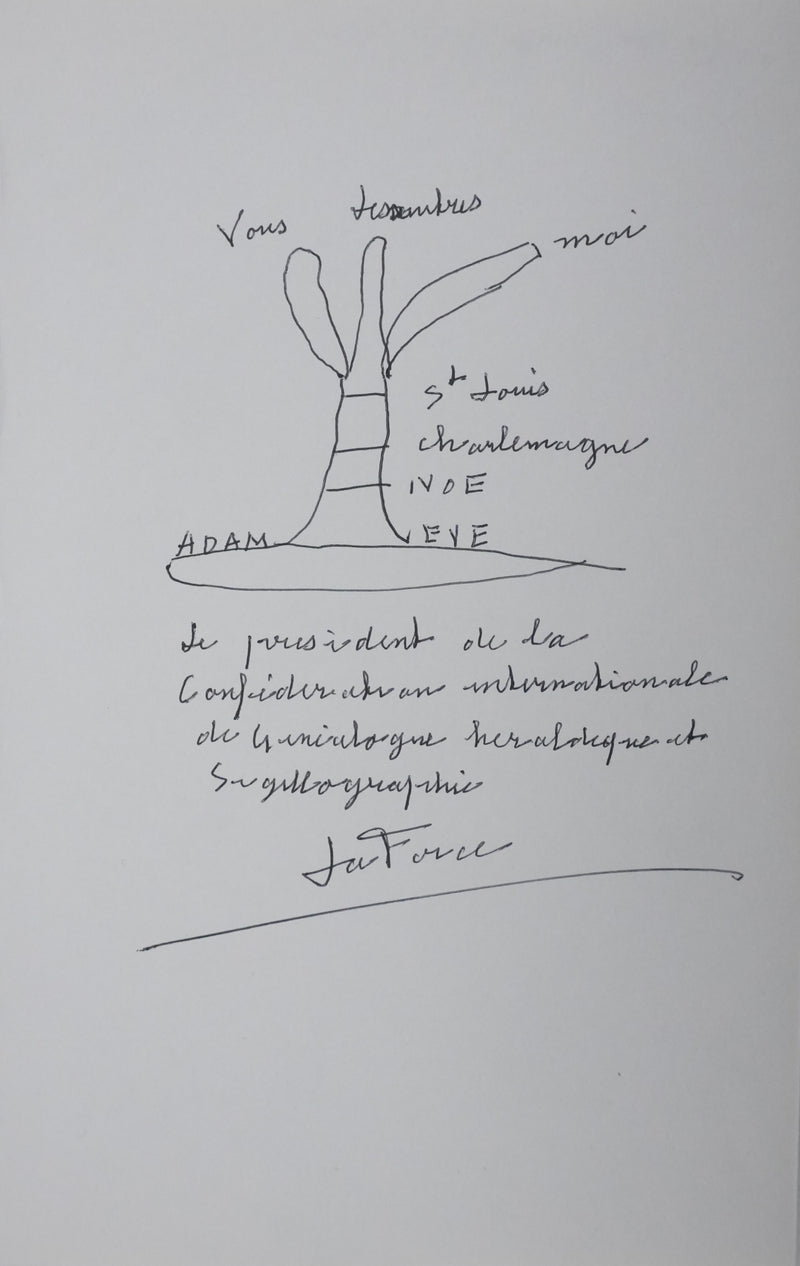 Vous les autres moi
St Louis
charlemagne
NOE
ADAM EVE
Le president de la
Confédération internationale
de Généalogie heraldique et
Sigillographie
La Force